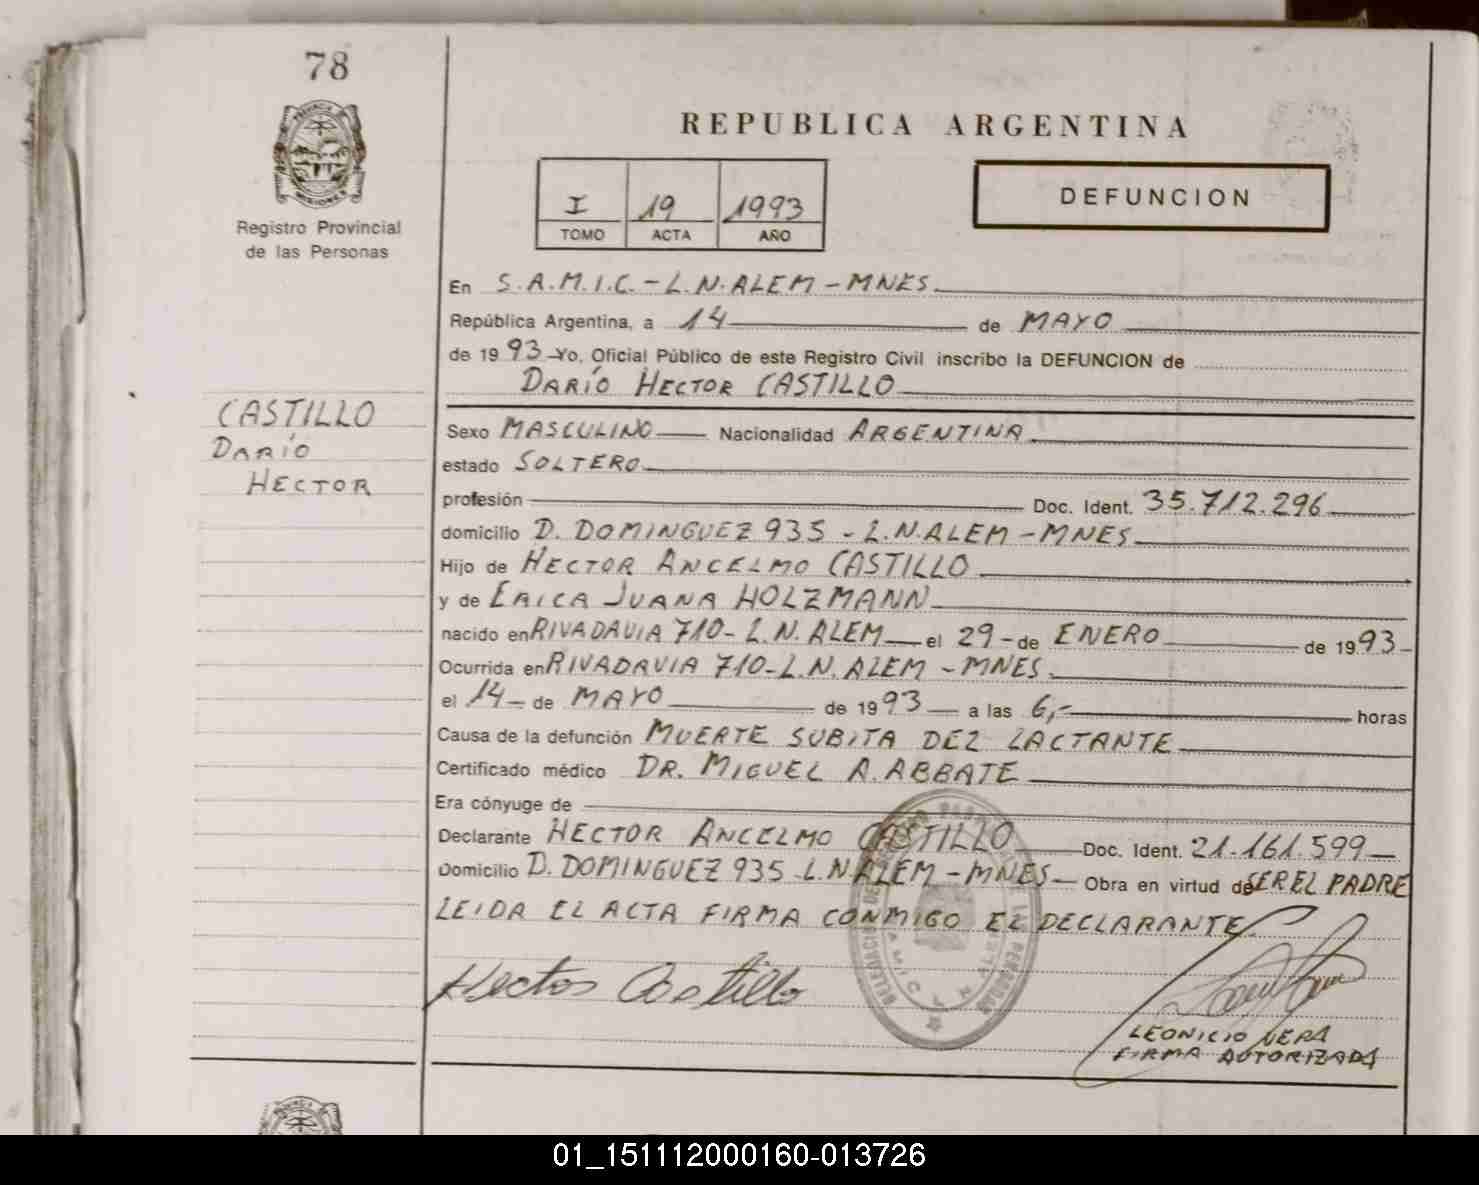 78
REPUBLICA ARGENTINA
Registro Provincial
de las Personas
I 19 1993
TOMO ACTA AÑO
DEFUNCION
En S.A.M.I.C.-L.N.ALEM-MNES
República Argentina, a 14 de MAYO
de 1993 Yo, Oficial Público de este Registro Civil inscribo la DEFUNCION de
DARÍO HECTOR CASTILLO
CASTILLO
DARÍO
HECTOR
Sexo MASCULINO Nacionalidad ARGENTINA
estado SOLTERO
profesión Doc. Ident. 35.712.296
domicilio D. DOMINGUEZ 935 - L.N.ALEM-MNES
Hijo de HECTOR ANCELMO CASTILLO
y de ERICA JUANA HOLZMANN
nacido en RIVADAVIA 710- L.N. ALEM el 29 - de ENERO de 1993
Ocurrida en RIVADAVIA 710-L.N. ALEM - MNES
el 14 de MAYO de 1993 a las 6,- horas
Causa de la defunción MUERTE SUBITA DEL LACTANTE
Certificado médico DR. MIGUEL A. ABBATE
Era cónyuge de
Declarante HECTOR ANCELMO CASTILLO Doc. Ident. 21.161.599
Domicilio D. DOMINGUEZ 935 L.N.ALEM-MNES Obra en virtud de SER EL PADRE
LEIDA EL ACTA FIRMA CONMIGO EL DECLARANTE
Hector Castillo
LEONICIO VERA
FIRMA AUTORIZADA
01_151112000160-013726